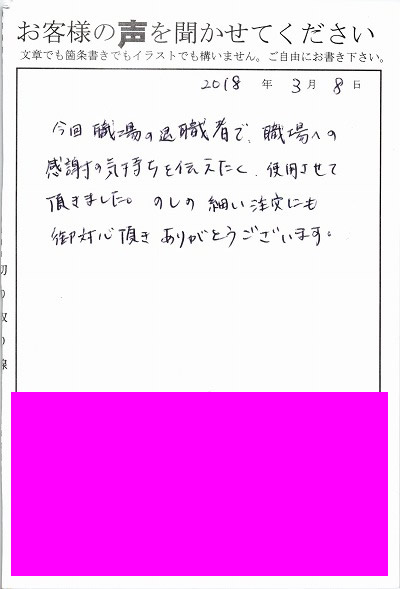 お客様の声を聞かせてください
文章でも箇条書きでもイラストでも構いません。ご自由にお書き下さい。
2018 年 3月 8日
今回 職場の退職者で、職場への
感謝の気持ちを伝えたく、使用させて
頂きました。のしの細い注文にも
御対応頂きありがとうございます。
切り取り線